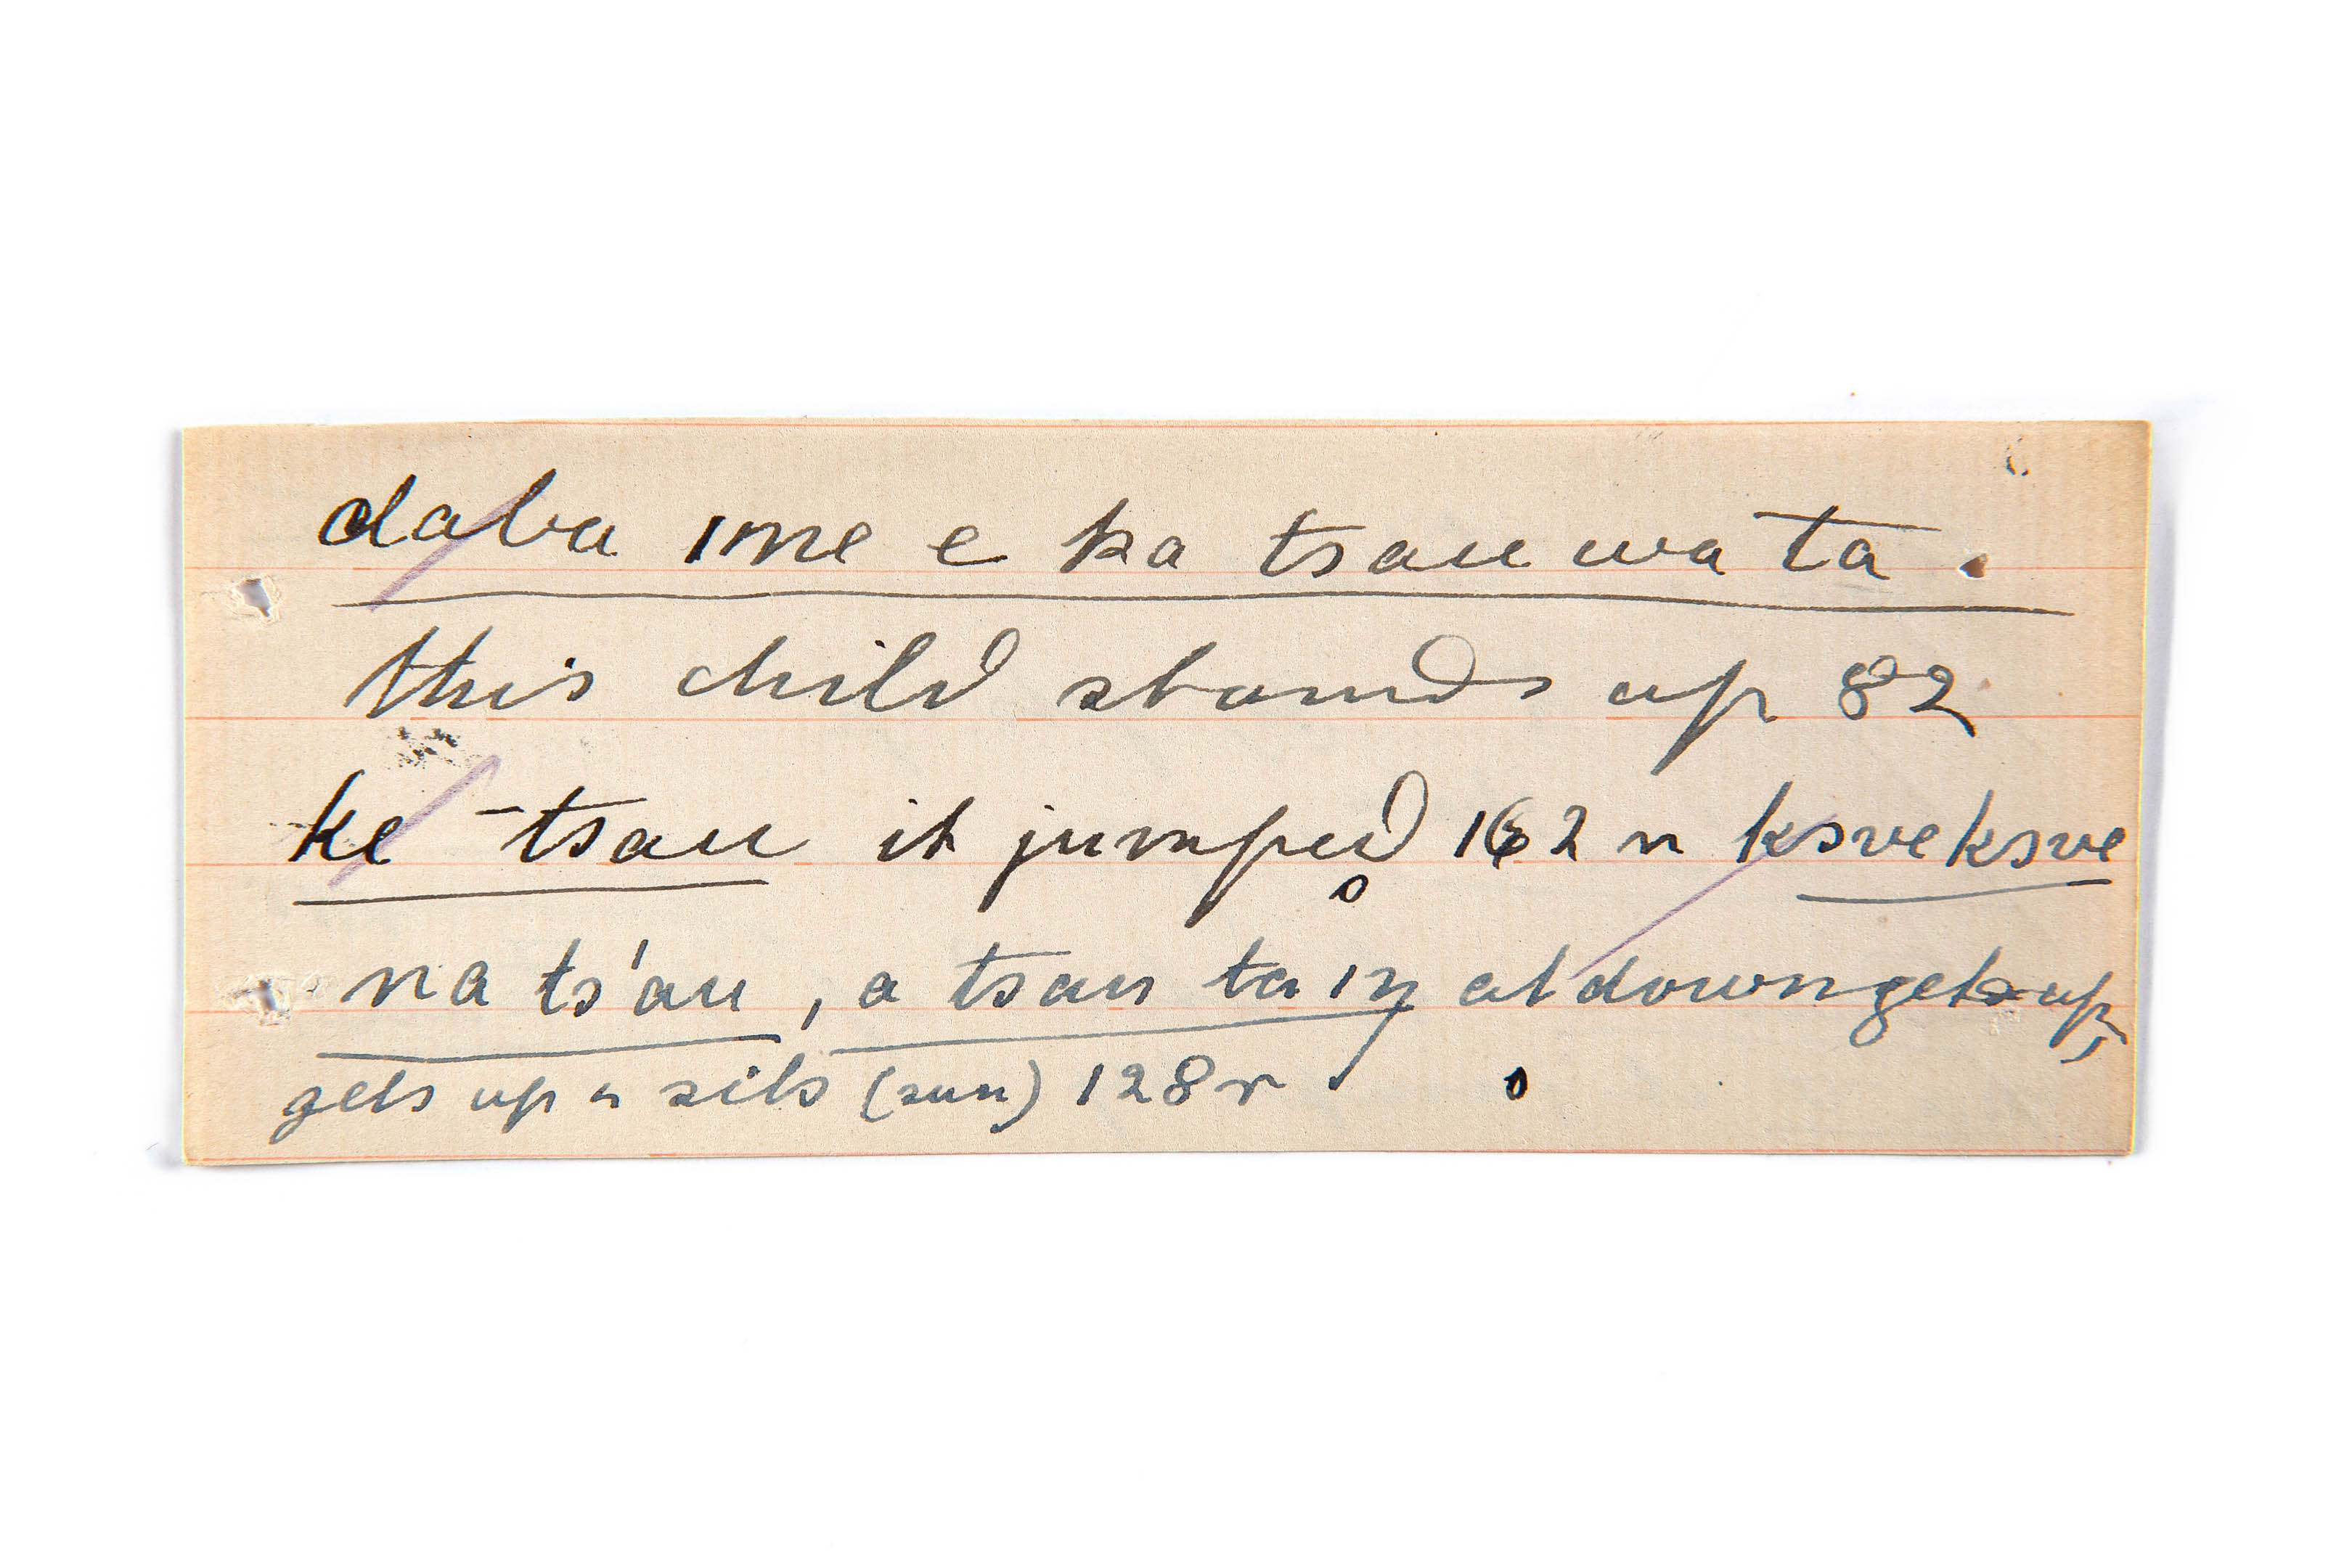 daba ıme e ka tsau wa ta.
this child stands up 82
ke tsau it jumped 162 n ksve ksve
na ts'au, a tsau ta ıŋ at down gets up,
gets up n sits (sun) 128 r